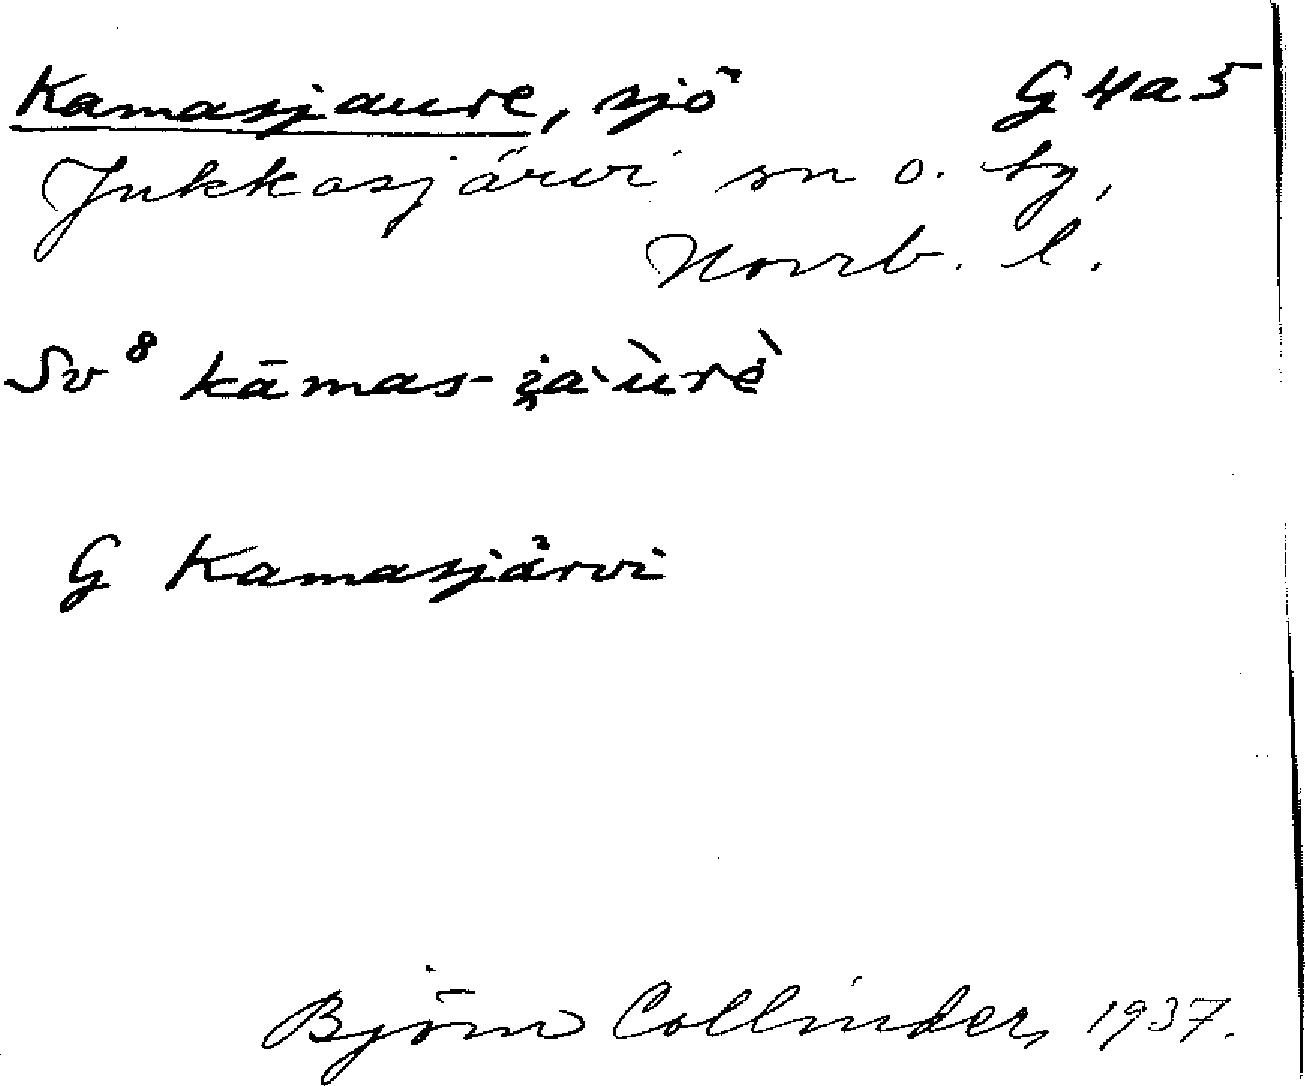 Kamasjaure, sjö G4a5
Jukkasjärvi sn o. tg,
Norrb. l.
Sv⁸ kāmas-
G Kamasjärvi
Björn Collinder, 1937.